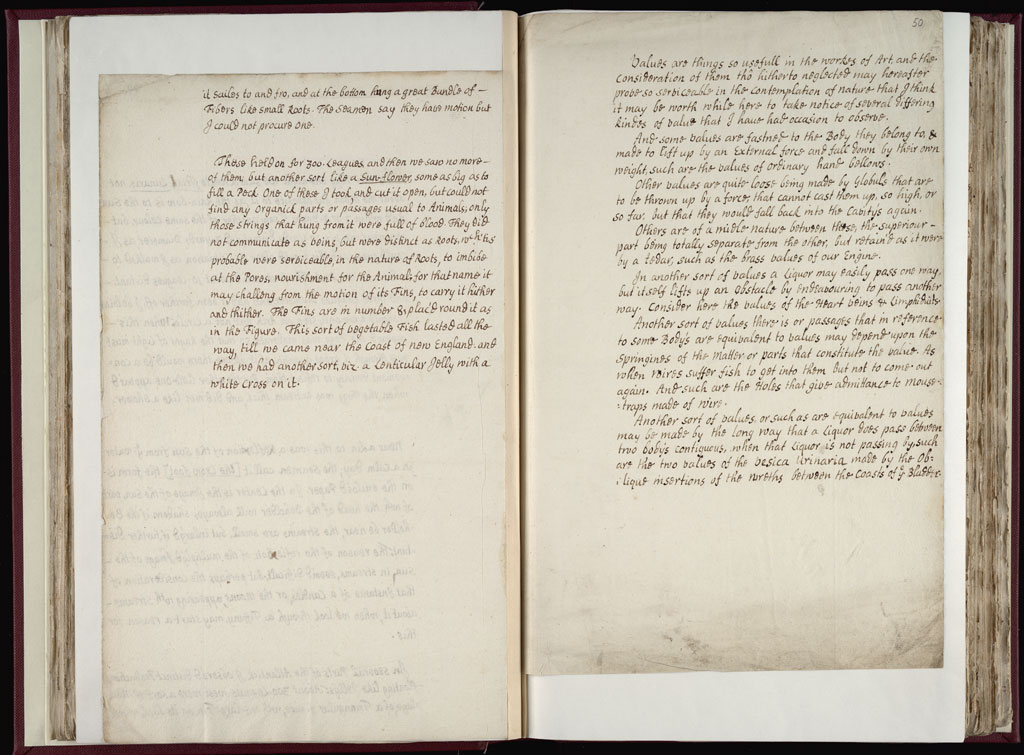 it sailes to and fro, and at the bottom hung a great Bundle of –
Fibers like small Roots. The seamen say they have motion but
I could not procure one.
Those held on for 300. Leagues, and then we saw no more –
of them; but another sort like a Sun-flower, some as big as to
fill a Peck. One of these I took and cut it open, but could not
find any Organick parts or passages usual to Animals, only
those strings that hung from it were full of blood. They did
not communicate as veins, but were distinct as Roots, wch 'tis
probable were serviceable, in the nature of Roots, to imbibe
at the Pores, nourishment for the Animal, for that name it
may challeng from the motion of its Fins, to carry it hither
and thither. The Fins are in number 8 plac'd round it as
in the Figure. This sort of vegetable Fish lasted all the
way, till we came near the Coast of new England. and
then we had another sort, viz. a Lenticular Jelly with a
white Cross on it.
50
Valves are things so usefull in the workes of Art, and the
consideration of them tho' hitherto neglected may hereafter
prove so serviceable in the contemplation of nature that I think
it may be worth while here to take notice of several differing
kindes of valve that I have had occasion to observe.
And some valves are fastned to the Body they belong to, &
made to lift up by an External force and fall down by their own
weight, such are the valves of ordinary hand bellows.
Other valves are quite loose being made by Globuls that are
to be thrown up by a force, that cannot cast them up, so high, or
so far, but that they would fall back into the Cavitys again.
Others are of a midle nature between these, the superiour –
part being totally separate from the other, but retain'd as it were
by a tedar, such as the brass valves of our Engine.
In another sort of valves a Liquor may easily pass one way,
but itself lifts up an Obstacle by endeavouring to pass another
way. Consider here the valves of the Heart veins & Limphiducts
Another sort of valves there is or passages that in reference
to some Bodys are equivalent to valves may depend upon the
springines of the matter or parts that constitute the valve. As
when wires suffer fish to get into them but not to come out
again. And such are the Holes that give admittance to mouse-
-traps made of wire.
Another sort of valves, or such as are equivalent to valves
may be made by the long way that a Liquor does pass between
two bodys contiguous, when that Liquor is not passing by, such
are the two valves of the Vesica Urinaria made by the Ob-
-lique insertions of the ureths between the Coasts of ye Bladder.